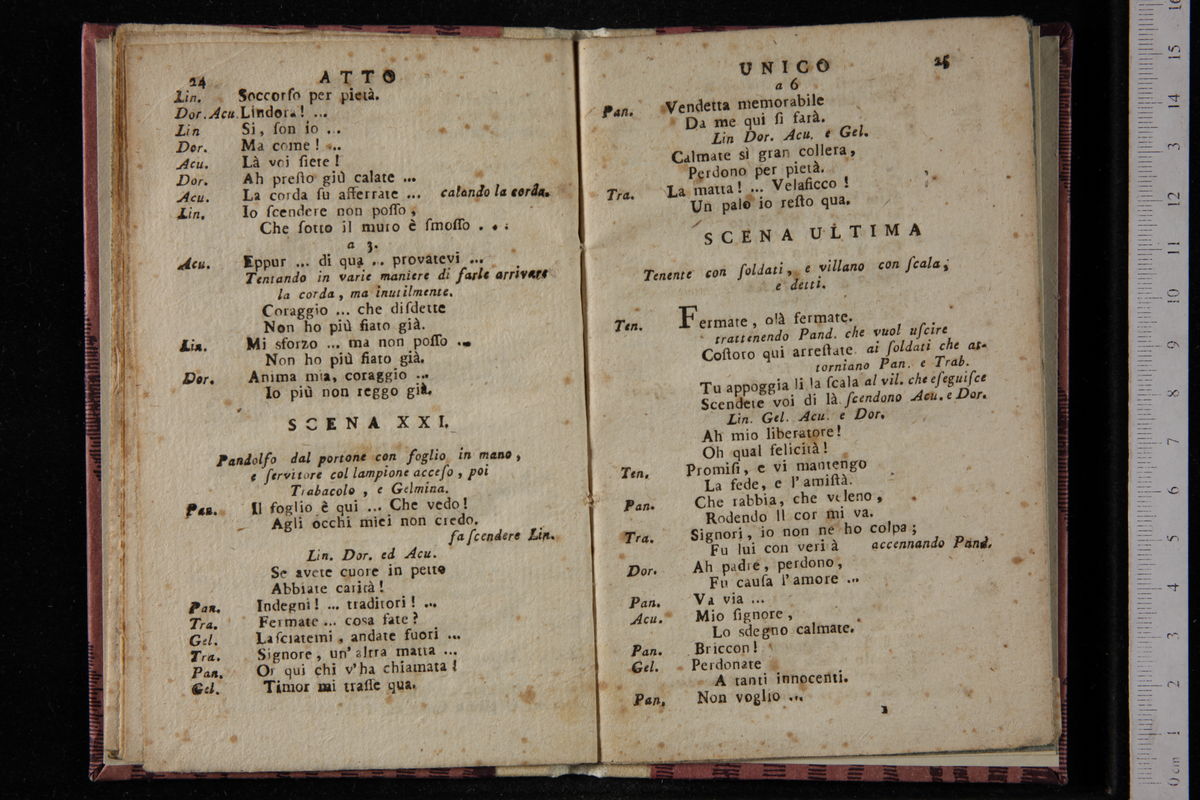 24 ATTO
Lin. Soccorſo per pietà.
Dor. Acu. Lindora! ...
Lin Si, ſon io ...
Dor. Ma come! ...
Acu. Là voi ſiete!
Dor. Ah preſto giù calate ...
Acu. La corda ſu afferrate ... calando la corda.
Lin. Io ſcendere non poſſo,
Che ſotto il muro è ſmoſſo . . .
a 3.
Acu. Eppur ... di qua .. provatevi ...
Tentando in varie maniere di farle arrivare
la corda, ma inutilmente.
Coraggio ... che diſdette
Non ho più fiato già.
Lin. Mi sforzo ... ma non poſſo ...
Non ho più fiato già.
Dor. Anima mia, coraggio ...
Io più non reggo già.
SCENA XXI.
Pandolfo dal portone con foglio in mano,
e ſervitore col lampione acceſo, poi
Trabacolo, e Gelmina.
Pan. Il foglio è qui ... Che vedo!
Agli occhi miei non credo.
fa ſcendere Lin.
Lin. Dor. ed Acu.
Se avete cuore in petto
Abbiate carità!
Pan. Indegni! ... traditori! ...
Tra. Fermate ... cosa fate?
Gel. Laſciatemi, andate fuori ...
Tra. Signore, un'altra matta ...
Pan. Or qui chi v'ha chiamata!
Gel. Timor mi traſſe qua.
UNICO 25
a 6
Pan. Vendetta memorabile
Da me qui ſi farà.
Lin Dor. Acu. e Gel.
Calmate sì gran collera,
Perdono per pietà.
Tra. La matta! ... Velaſicco!
Un palo io reſto qua.
SCENA ULTIMA
Tenente con ſoldati, e villano con ſcala,
e detti.
Ten. Fermate, olà fermate.
trattenendo Pand. che vuol uſcire
Coſtoro qui arreſtate. ai ſoldati che at-
torniano Pan. e Trab.
Tu appoggia lì la ſcala al vil. che eſeguiſce
Scendete voi di là ſcendono Acu. e Dor.
Lin. Gel. Acu. e Dor.
Ah mio liberatore!
Oh qual felicità!
Ten. Promiſi, e vi mantengo
La fede, e l'amiſtà.
Pan. Che rabbia, che veleno,
Rodendo il cor mi va.
Tra. Signori, io non ne ho colpa;
Fu lui con verità accennando Pand.
Dor. Ah padre, perdono,
Fu cauſa l'amore ...
Pan. Va via ...
Acu. Mio ſignore,
Lo sdegno calmate.
Pan. Briccon!
Gel. Perdonate
A tanti innocenti.
Pan. Non voglio ...